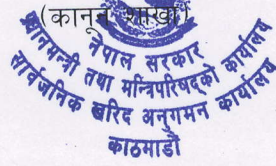 (कानून शाखा)
नेपाल सरकार
प्रधानमन्त्री तथा मन्त्रिपरिषद्को कार्यालय
सार्वजनिक खरिद अनुगमन कार्यालय
काठमाडौं